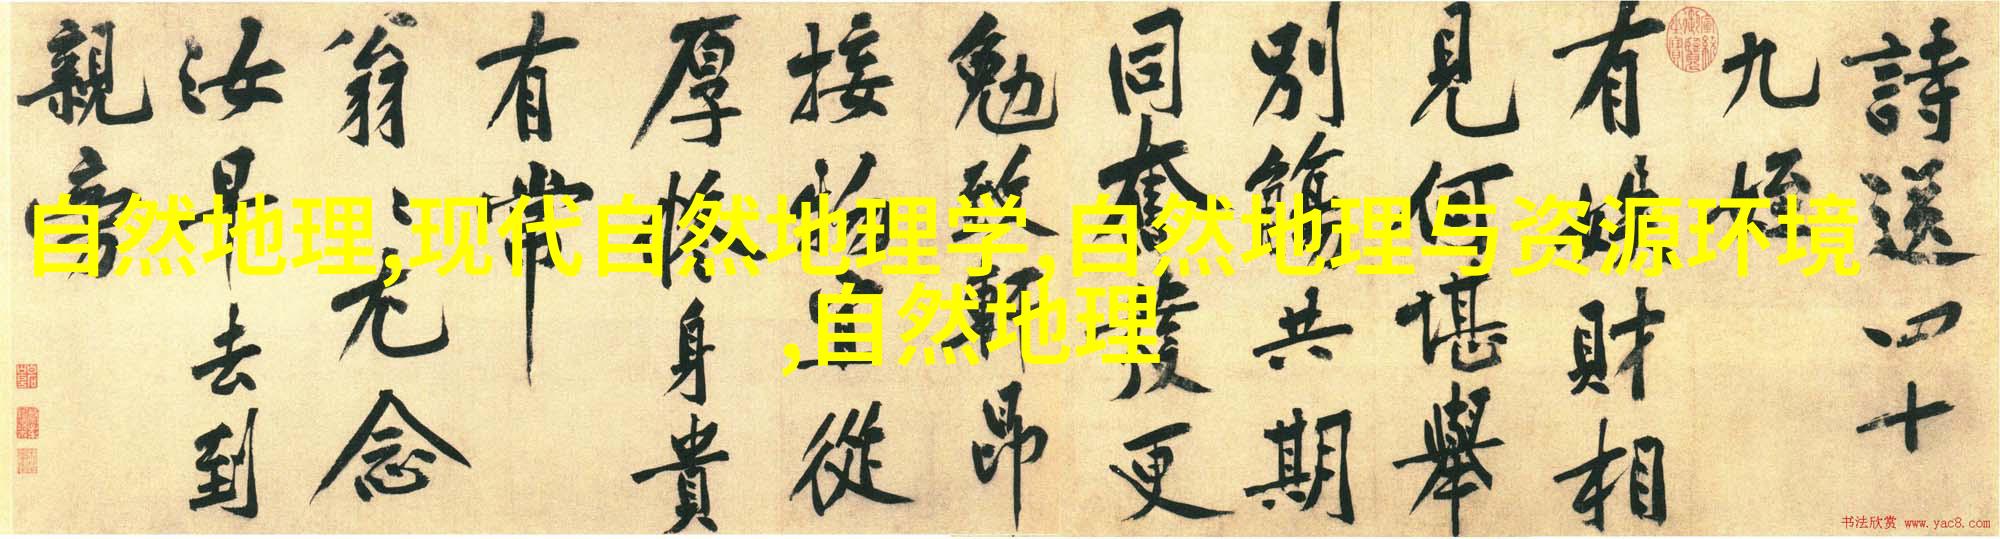 詩送四十
九姪
有姪財相
見何堪舉
別觴共期
同奮發更
勉致軒昂
接物宜從
厚脩身貴
有常
翁〻老念
汝早去到
親旁
自然地理,现代自然地理学,自然地理与资源环境
,自然地理
书法欣赏 www.yac8.com